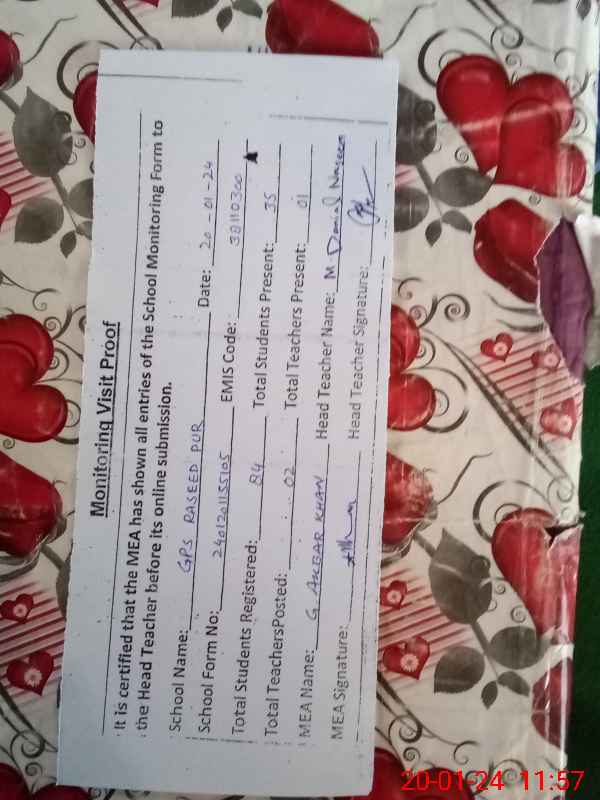 Monitoring Visit Proof
It is certified that the MEA has shown all entries of the School Monitoring Form to
the Head Teacher before its online submission.
School Name: GPS RASEED PUR Date: 20-01-24
School Form No: 2401201155105 EMIS Code: 38110300
Total Students Registered: 84 Total Students Present: 35
Total TeachersPosted: 02 Total Teachers Present: 01
MEA Name: G AKBAR KHAN Head Teacher Name: M Danial Naseem
MEA Signature: Head Teacher Signature:
20-01-24 11:57